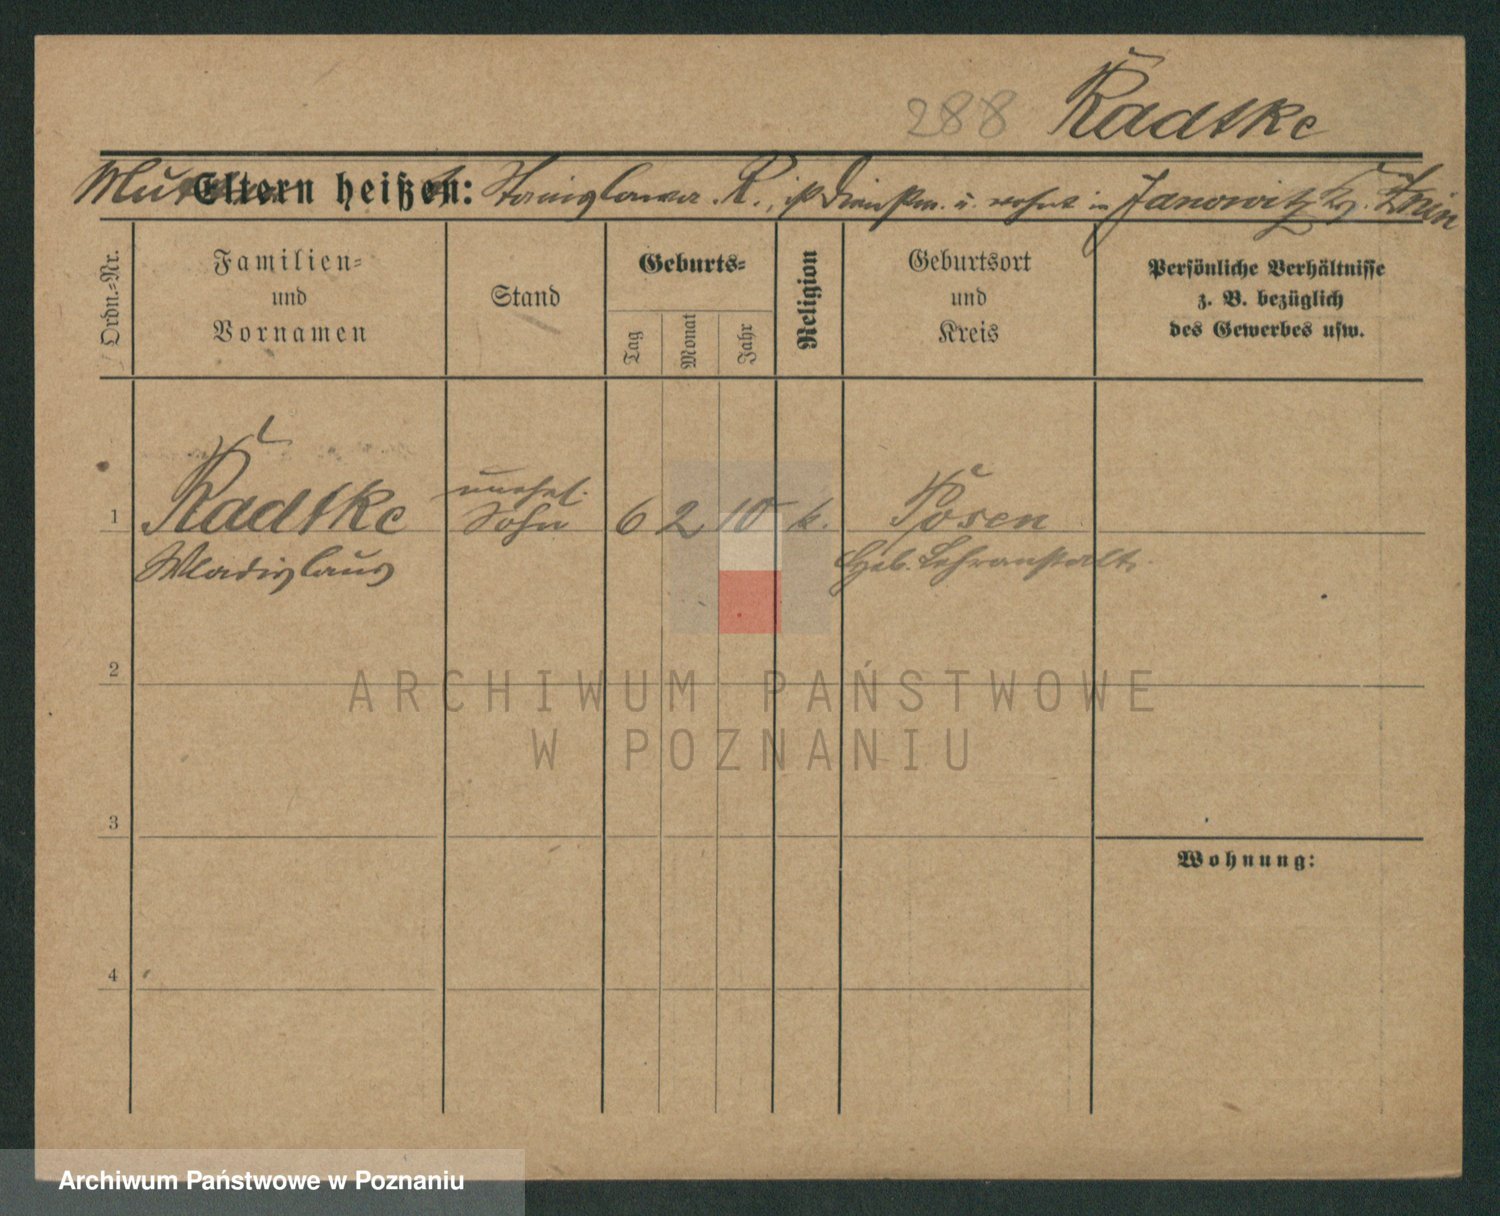 288 Radtke
Mutter Eltern heißen: Stanislawa R., ist Dienstm. u. wohnt in Janowitz Kr. Znin
Ordn.-Nr.
Familien-
und
Vornamen
Stand
Geburts-
Tag
Monat
Jahr
Religion
Geburtsort
und
Kreis
Persönliche Verhältnisse
z. B. bezüglich
des Gewerbes usw.
1 Radtke
Wladislaus
unehel.
Sohn
6 2 10 k.
Posen
Heb. Lehranstalt
2
ARCHIWUM PAŃSTWOWE
W POZNANIU
3
Wohnung:
4
Archiwum Państwowe w Poznaniu